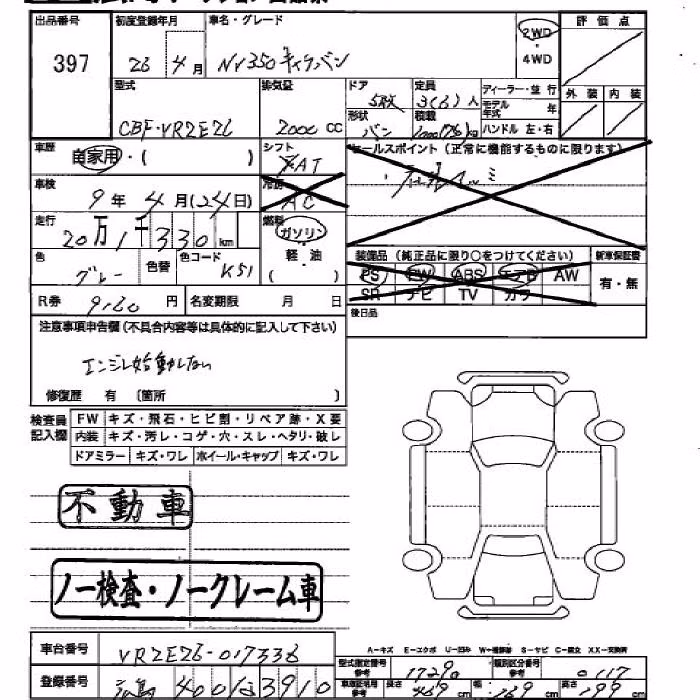 出品番号
397
初度登録年月
26 4月
車名・グレード
NV350キャラバン
2WD
・
4WD
評価点
型式
CBF-VR2E26
排気量
2000 CC
ドア
形状
バン
定員
3(6)人
積載
kg
ディーラー・並行
モデル年式 年
ハンドル 左・右
外装 内装
車歴
自家用・( )
シフト
AT
セールスポイント(正常に機能するものに限ります)
車検
9年 4月(24日)
冷房
AC
走行
20万1千330km
燃料
ガソリン
軽・油
( )
色
グレー
色替
色コード
K51
装備品(純正品に限り○をつけてください)
PS PW ABS エアB AW
SR ナビ TV カワ
新車保証書
有・無
R券
9,160円
名変期限 月 日
後日品
注意事項申告欄(不具合内容等は具体的に記入して下さい)
エンジン始動しない
修復歴 有 〔箇所 〕
検査員記入欄
FW キズ・飛石・ヒビ割・リペア跡・X要
内装 キズ・汚レ・コゲ・穴・スレ・ヘタリ・破レ
ドアミラー キズ・ワレ ホイール・キャップ キズ・ワレ
不動車
ノー検査・ノークレーム車
車台番号
VR2E26-017336
A-キズ E-エクボ U-凹ミ W-補修跡 S-サビ C-腐食 XX-交換済
登録番号
400 3910
型式指定番号 参考
類別区分番号 参考
0117
車庫証明用 参考
長さ 469 cm
幅 169 cm
高さ 199 cm